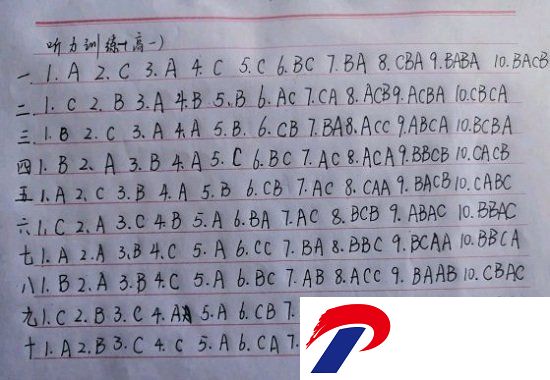 听力训练(高一)
一 1. A 2. C 3. A 4. C 5. C 6. BC 7. BA 8. CBA 9. BABA 10. BACB
二 1. C 2. B 3. A 4. B 5. B 6. AC 7. CA 8. ACB 9. ACBA 10. CBCA
三 1. B 2. C 3. A 4. A 5. B. 6. CB 7. BA 8. ACC 9. ABCA 10. BCBA
四 1. B 2. A 3. B 4. A 5. C 6. BC 7. AC 8. ACA 9. BBCB 10. CACB
五 1. A 2. C 3. B 4. A 5. B 6. CB 7. AC 8. CAA 9. BACB 10. CABC
六 1. C 2. A 3. C 4. B 5. A 6. BA 7. AC 8. BCB 9. ABAC 10. BBAC
七 1. A 2. A 3. B 4. C 5. A 6. CC 7. BA 8. BBC 9. BCAA 10. BBCA
八 1. B 2. A 3. B 4. C 5. A 6. BC 7. AB 8. ACC 9. BAAB 10. CBAC
九 1. C 2. B 3. C 4. A 5. A 6. CB 7.
十 1. A 2. B 3. C 4. C 5. A 6. CA 7.